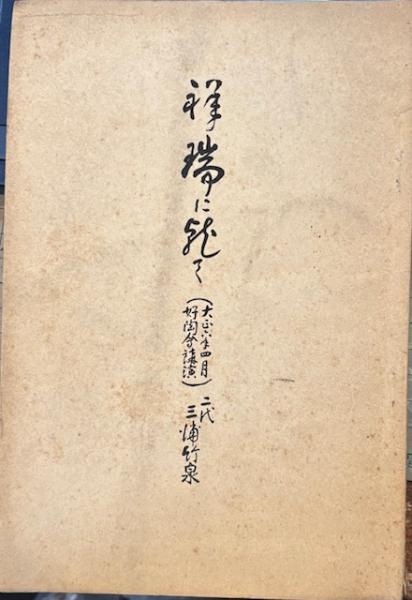 祥瑞に就て
(大正六年四月
好陶会講演)
二代
三浦竹泉